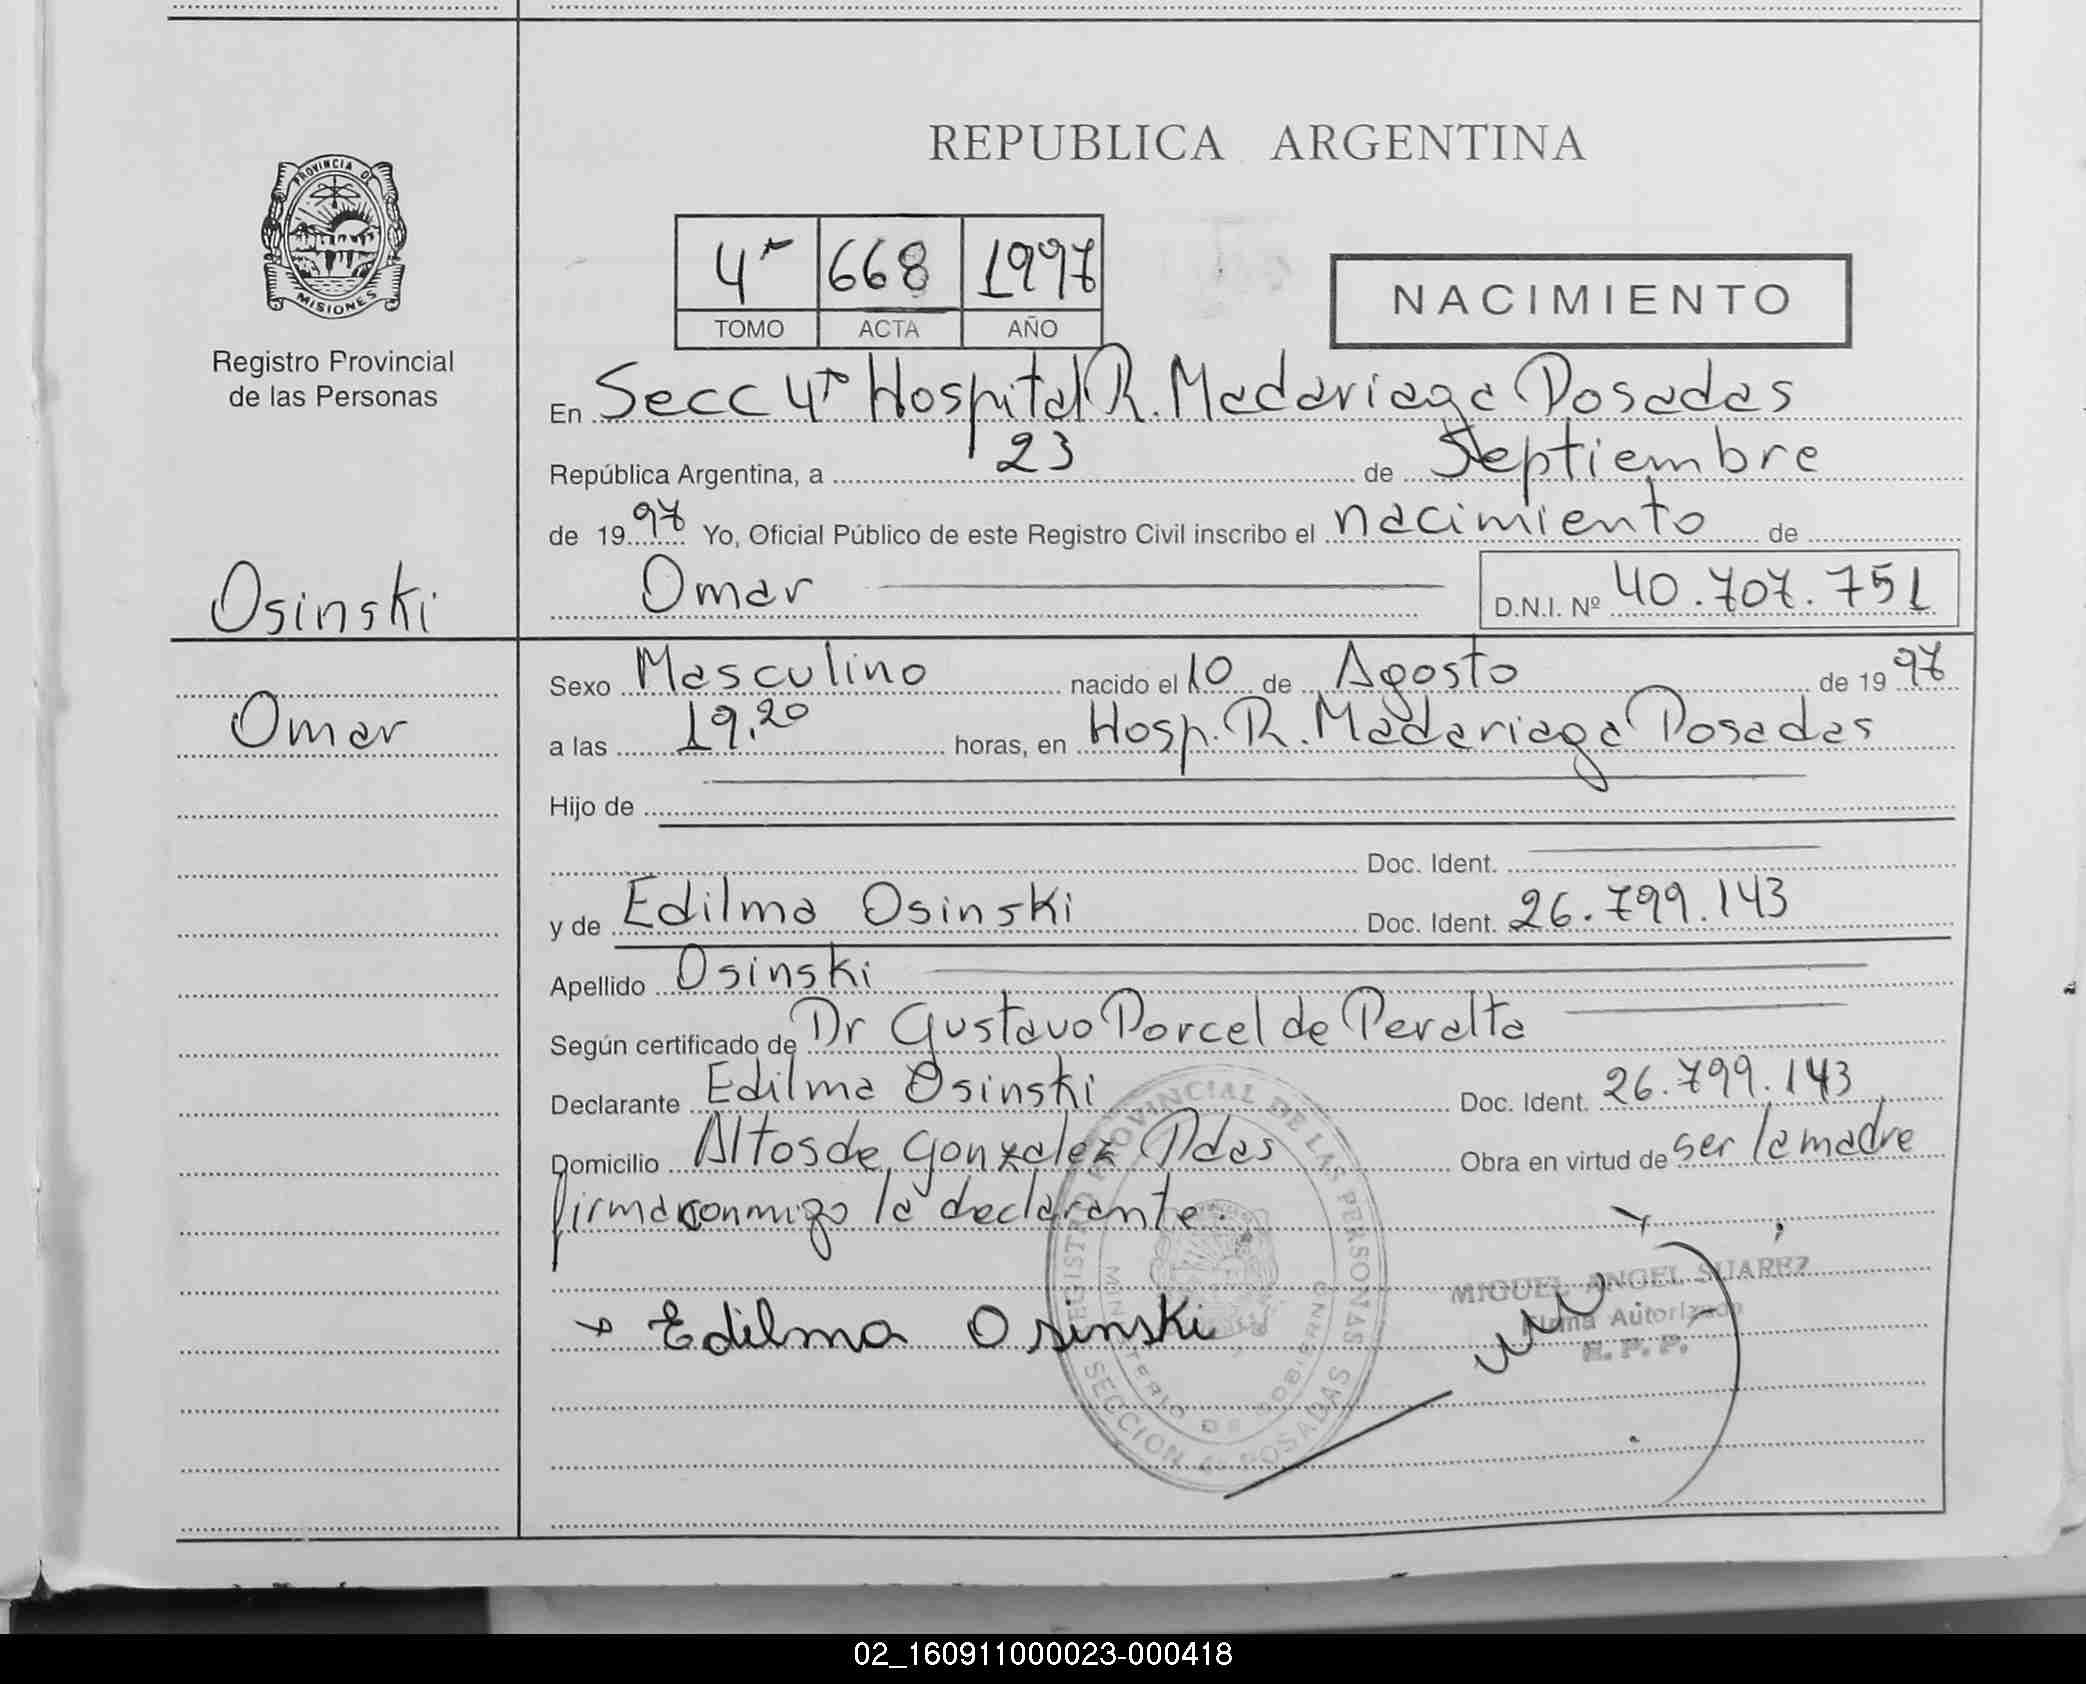 REPUBLICA ARGENTINA
PROVINCIA DE
MISIONES
Registro Provincial
de las Personas
4ta 668 1997
TOMO ACTA AÑO
NACIMIENTO
En Secc 4ta Hospital R. Madariaga Posadas
República Argentina, a 23 de Septiembre
de 1997 Yo, Oficial Público de este Registro Civil inscribo el nacimiento de
Omar D.N.I. Nº 40.707.751
Osinski
Omar
Sexo Masculino nacido el 10 de Agosto de 1997
a las 19,20 horas, en Hosp. R. Madariaga Posadas
Hijo de
Doc. Ident.
y de Edilma Osinski Doc. Ident. 26.799.143
Apellido Osinski
Según certificado de Dr Gustavo Porcel de Peralta
Declarante Edilma Osinski Doc. Ident. 26.799.143
Domicilio Altos de Gonzalez Pdas Obra en virtud de ser la madre
firma conmigo la declarante.
Edilma Osinski
REGISTRO PROVINCIAL DE LAS PERSONAS
MINISTERIO DE GOBIERNO
SECCION 4ª POSADAS
MIGUEL ANGEL SUAREZ
Firma Autorizada
R. P. P.
02_160911000023-000418